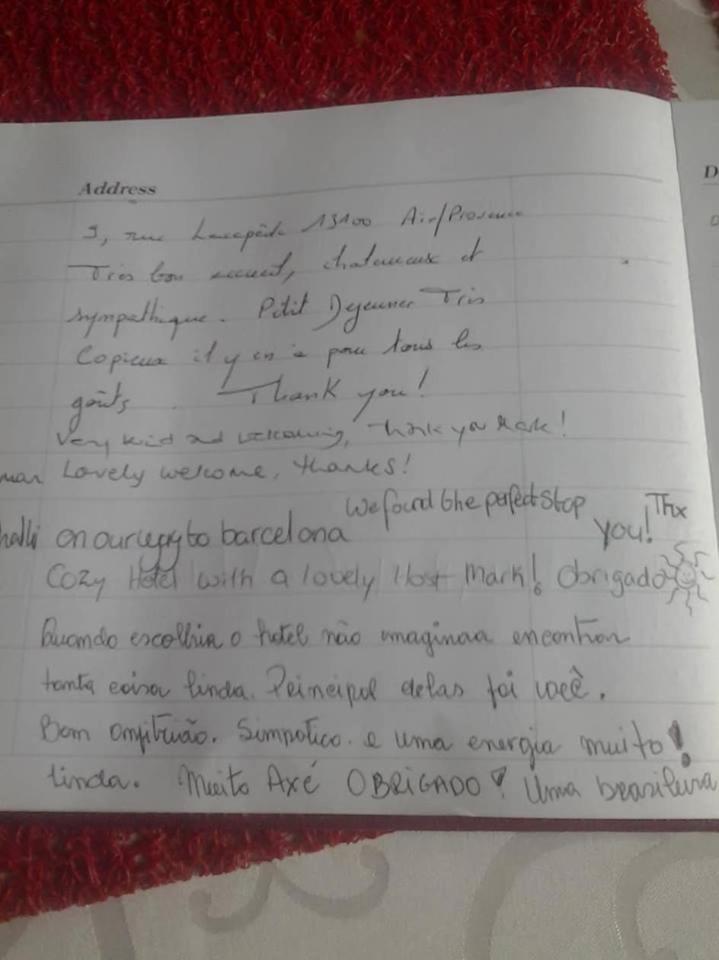 Address
D
9, rue Lacepède 13100 Aix/Provence
Très bon accueil, chaleureux et
sympathique. Petit Dejeuner Très
Copieux il y en a pour tous les
goûts. Thank you!
Very kind and welcoming, Thank you Mark!
Lovely welcome, thanks!
We found the perfect stop
on our way to barcelona
Thx
you!
Cozy Hotel with a lovely Host Mark! Obrigado
Quando escolhia o hotel não imaginaa encontrar
tanta coisa linda. Principal delas foi você.
Bom anfitrião. Simpatico. e uma energia muito!
linda. Muito Axé OBRIGADO! Uma brasileira